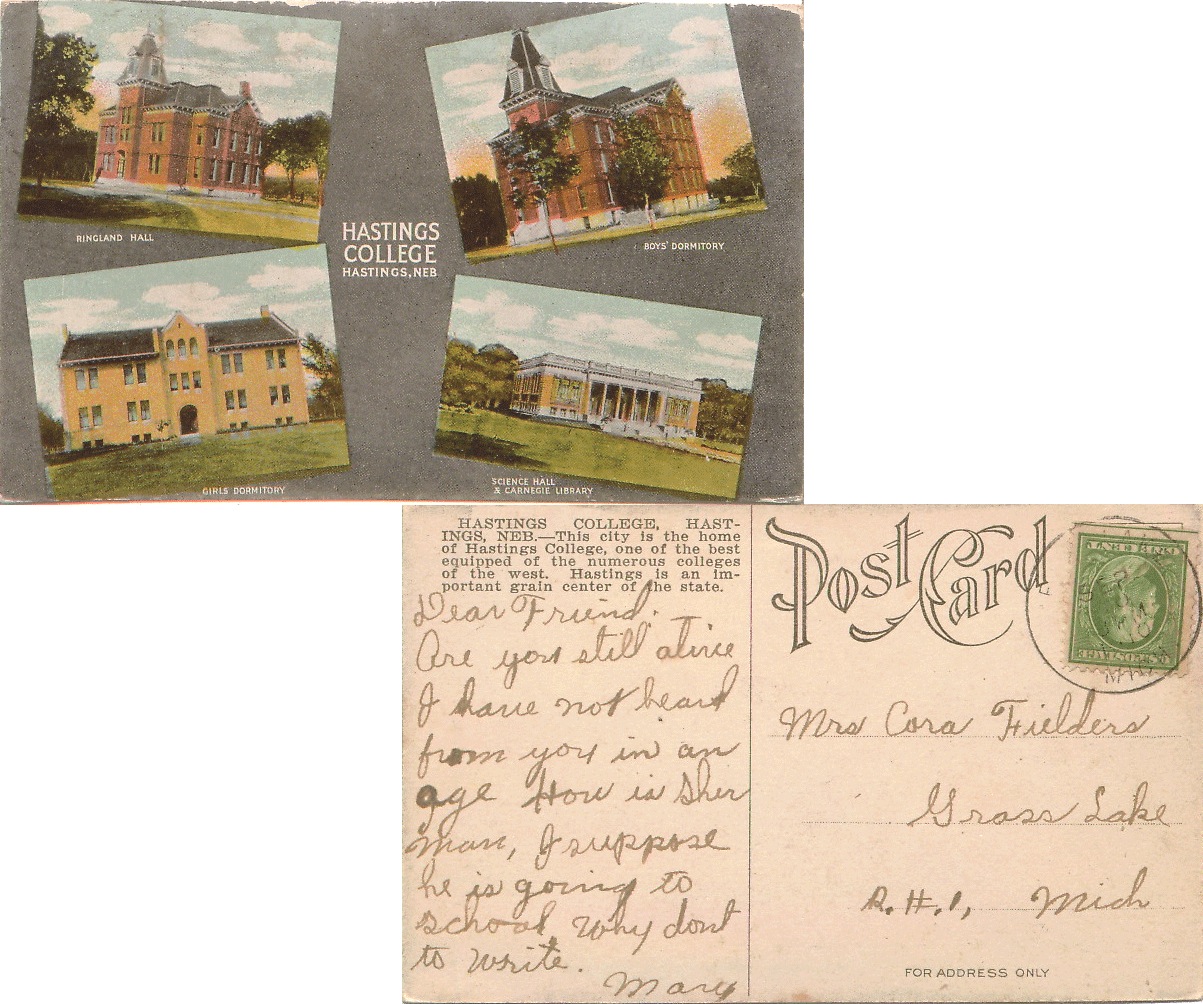 RINGLAND HALL
HASTINGS
COLLEGE
HASTINGS, NEB
BOYS' DORMITORY
GIRLS DORMITORY
SCIENCE HALL
& CARNEGIE LIBRARY
HASTINGS COLLEGE, HAST-
INGS, NEB.—This city is the home
of Hastings College, one of the best
equipped of the numerous colleges
of the west. Hastings is an im-
portant grain center of the state.
Dear Friend.
Are you still alive
I have not heard
from you in an
age How is Sher
man, I suppose
he is going to
school, Why dont
to write.
Mary
Post Card
Mrs Cora Fielders
Grass Lake
R.#.1, Mich
FOR ADDRESS ONLY